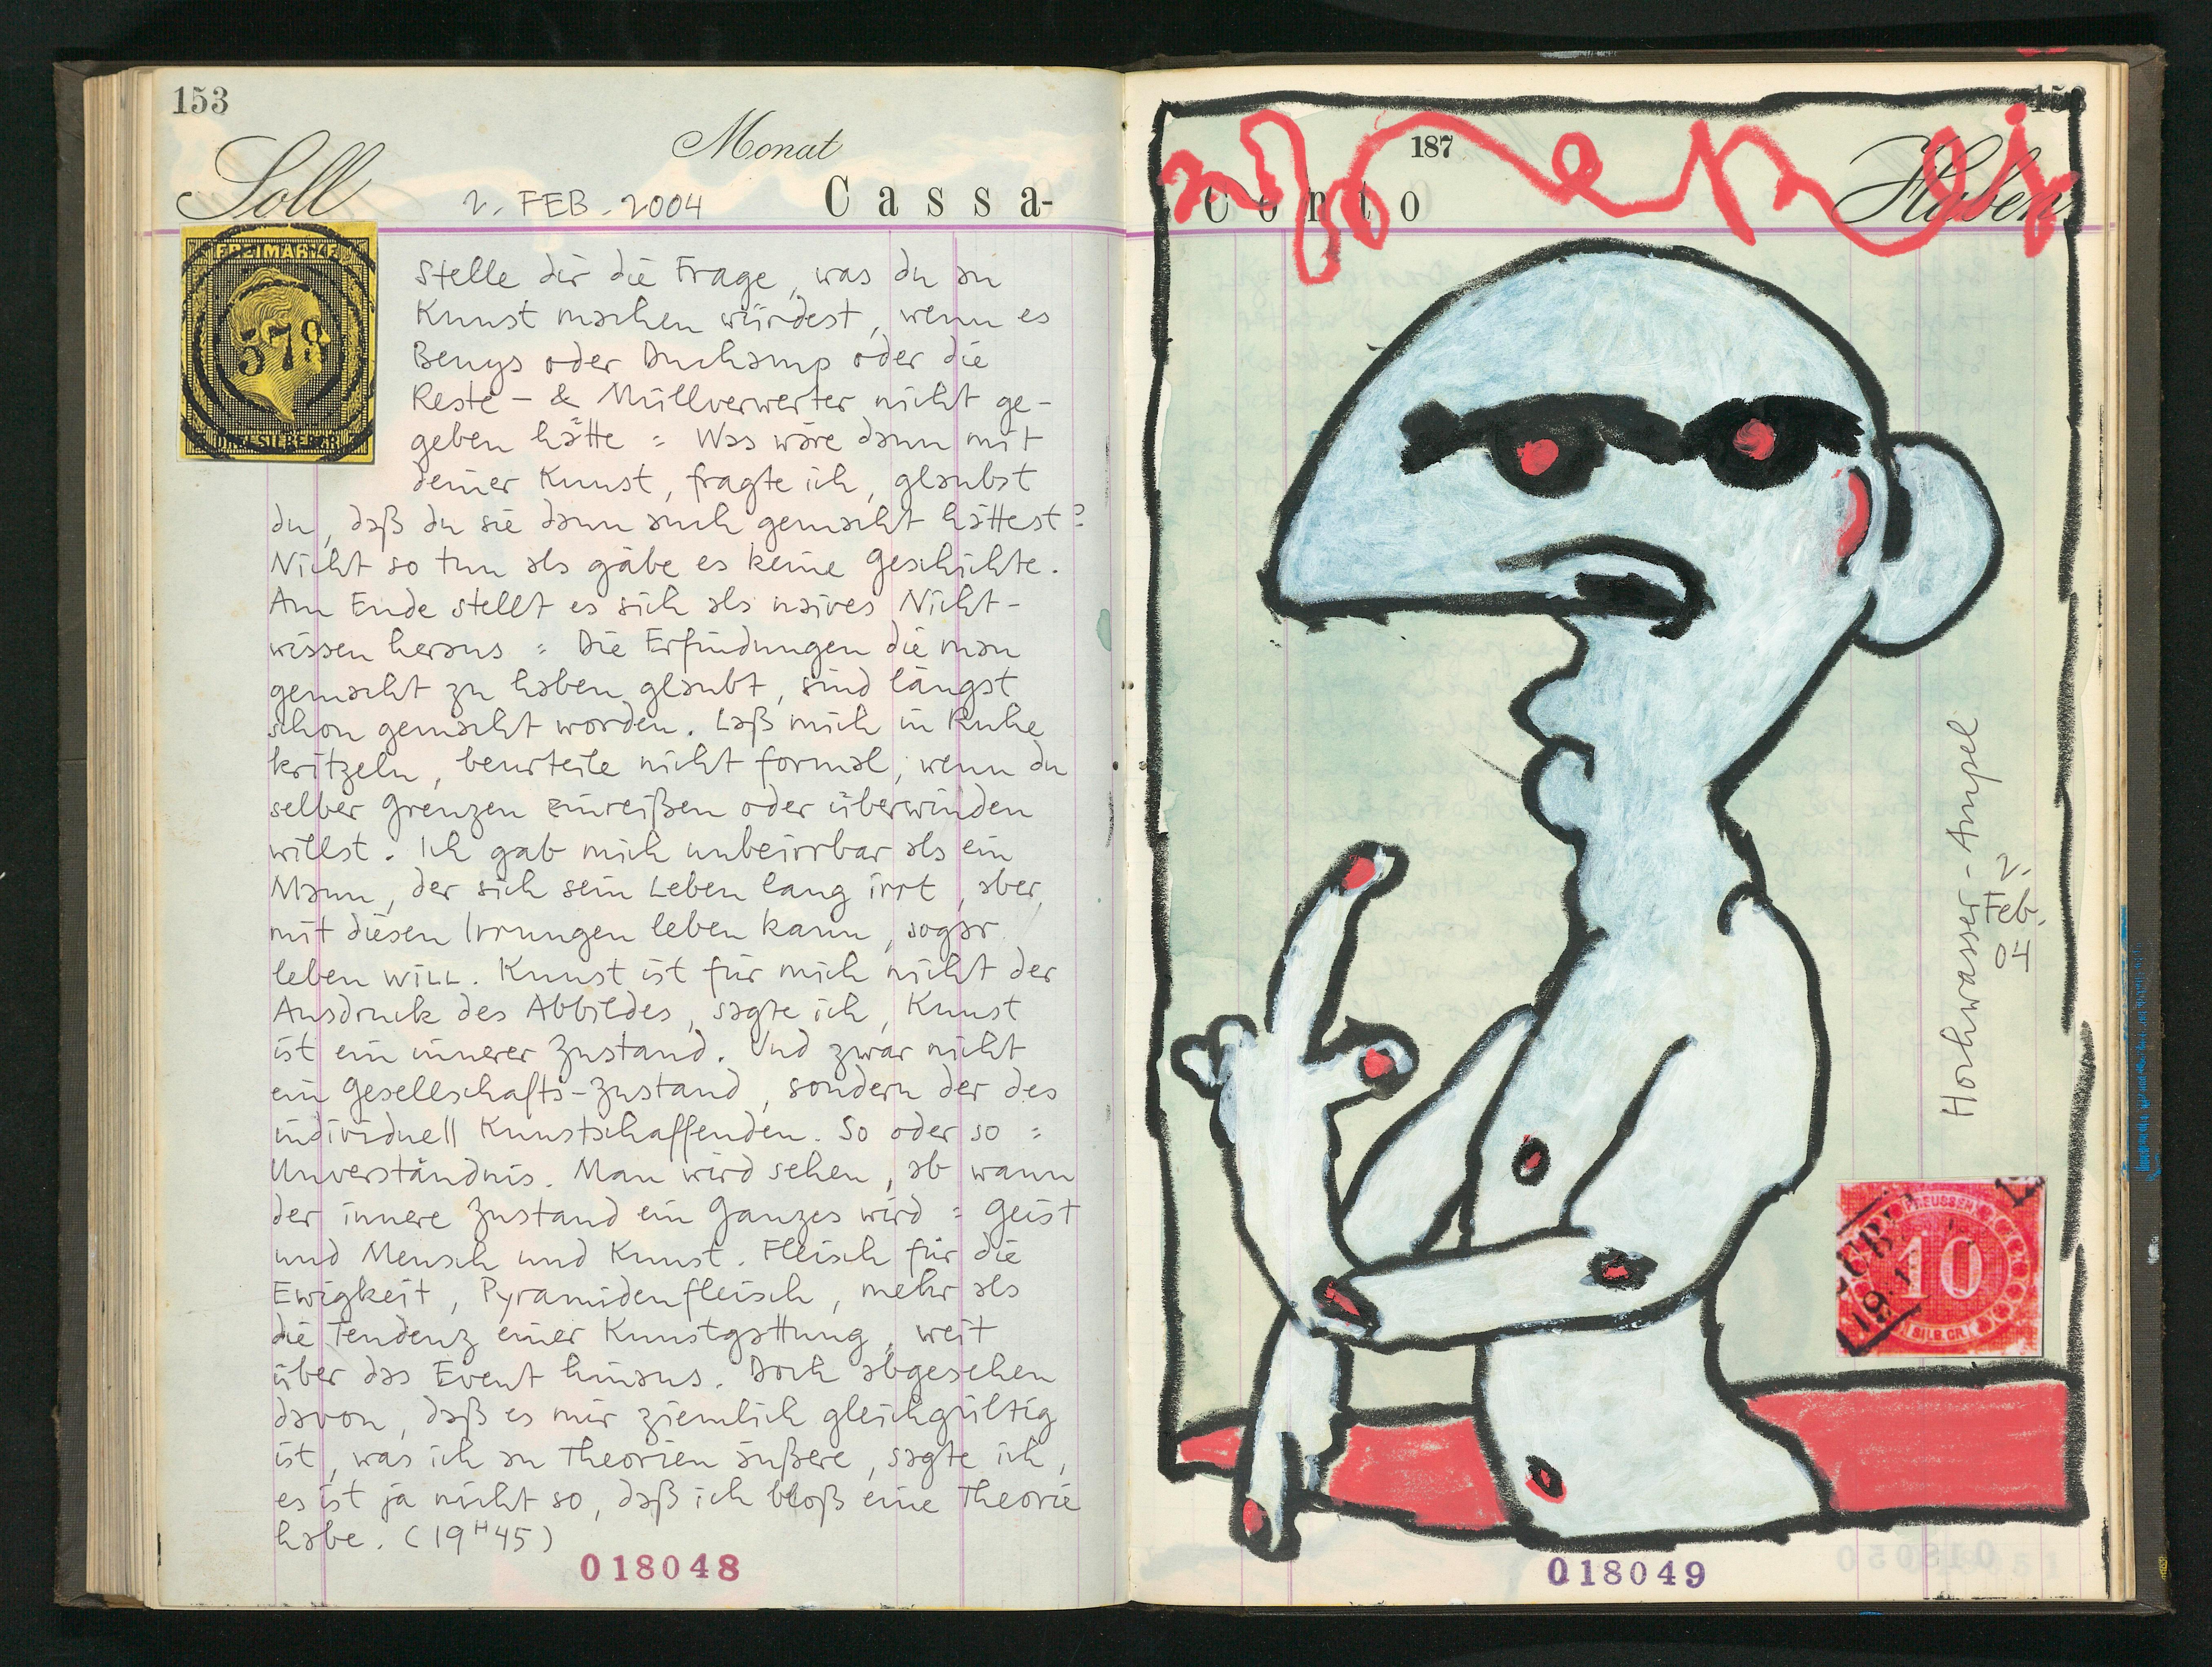 153
Soll
Monat
2. FEB. 2004
Cassa-
FREIMARKE
578
Stelle dir die Frage, was du an
Kunst machen würdest, wenn es
Beuys oder Duchamp oder die
Reste- & Müllverwerter nicht ge-
geben hätte : Was wäre dann mit
deiner Kunst, fragte ich, glaubst
du, daß du sie dann auch gemacht hättest?
Nicht so tun als gäbe es keine Geschichte.
Am Ende stellt es sich als naives Nicht-
wissen heraus : Die Erfindungen die man
gemacht zu haben glaubt, sind längst
schon gemacht worden. Laß mich in Ruhe
kritzeln, beurteile nicht formal, wenn du
selber Grenzen einreißen oder überwinden
willst. Ich gab mich unbeirrbar als ein
Mann, der sich sein Leben lang irrt, aber,
mit diesen Irrungen leben kann, sogar
leben WILL. Kunst ist für mich nicht der
Ausdruck des Abbildes, sagte ich, Kunst
ist ein innerer Zustand. Und zwar nicht
ein Gesellschafts-Zustand, sondern der des
individuell Kunstschaffenden. So oder so :
Unverständnis. Man wird sehen, ab wann
der innere Zustand ein Ganzes wird : Geist
und Mensch und Kunst. Fleisch für die
Ewigkeit, Pyramidenfleisch, mehr als
die Tendenz einer Kunstgattung, weit
über das Event hinaus. Doch abgesehen
davon, daß es mir ziemlich gleichgültig
ist, was ich an Theorien äußere, sagte ich,
es ist ja nicht so, daß ich bloß eine Theorie
habe. (19H45)
018048
153
187
Conto
Haben
Hochwasser-Ampel
2. Feb.
04
PREUSSEN
10
SILB. GR.
018049